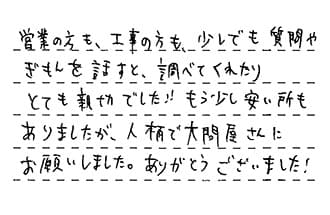 営業の方も、工事の方も、少しでも質問や
ぎもんを話すと、調べてくれたり
とても親切でした!! もう少し安い所も
ありましたが、人柄で大問屋さんに
お願いしました。ありがとうございました!